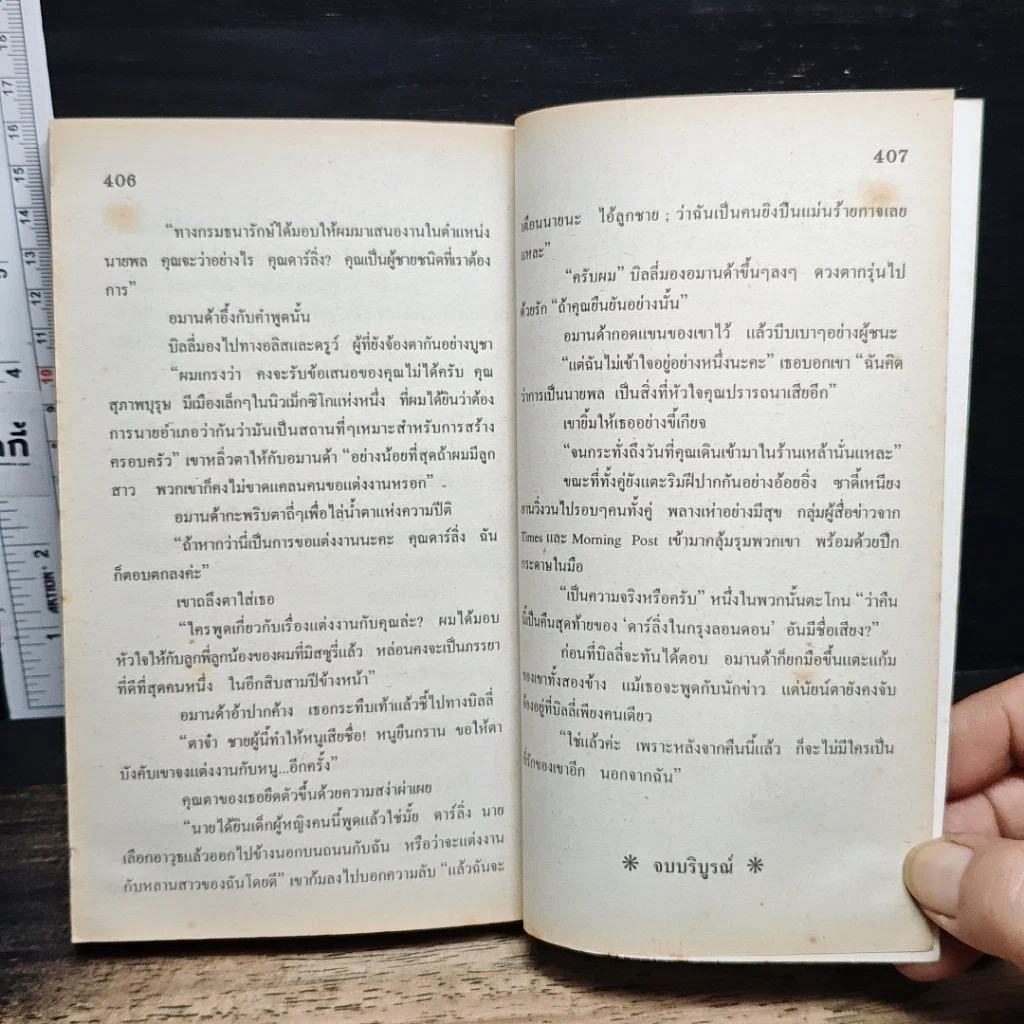 406
“ทางกรมธนารักษ์ได้มอบให้ผมมาเสนองานในตำแหน่ง
นายพล คุณจะว่าอย่างไร คุณดาร์ลิ่ง? คุณเป็นผู้ชายชนิดที่เราต้อง
การ”
อมานด้าอึ้งกับคำพูดนั้น
บิลลี่มองไปทางอลิสและดรูว์ ผู้ที่ยังจ้องตากันอย่างบูชา
“ผมเกรงว่า คงจะรับข้อเสนอของคุณไม่ได้ครับ คุณ
สุภาพบุรุษ มีเมืองเล็กๆในนิวเม็กซิโกแห่งหนึ่ง ที่ผมได้ยินว่าต้อง
การนายอำเภอว่ากันว่ามันเป็นสถานที่ๆเหมาะสำหรับการสร้าง
ครอบครัว” เขาหลิ่วตาให้กับอมานด้า “อย่างน้อยที่สุดถ้าผมมีลูก
สาว พวกเขาก็คงไม่ขาดแคลนคนขอแต่งงานหรอก”
อมานด้ากะพริบตาถี่ๆเพื่อไล่น้ำตาแห่งความปีติ
“ถ้าหากว่านี่เป็นการขอแต่งงานนะคะ คุณดาร์ลิ่ง ฉัน
ก็ตอบตกลงค่ะ”
เขาถลึงตาใส่เธอ
“ใครพูดเกี่ยวกับเรื่องแต่งงานกับคุณล่ะ? ผมได้มอบ
หัวใจให้กับลูกพี่ลูกน้องของผมที่มิสซูรี่แล้ว หล่อนคงจะเป็นภรรยา
ที่ดีที่สุดคนหนึ่ง ในอีกสิบสามปีข้างหน้า”
อมานด้าอ้าปากค้าง เธอกระทืบเท้าแล้วชี้ไปทางบิลลี่
“ตาจ๋า ชายผู้นี้ทำให้หนูเสียชื่อ! หนูยืนกราน ขอให้ตา
บังคับเขาจงแต่งงานกับหนู...อีกครั้ง”
คุณตาของเธอยืดตัวขึ้นด้วยความสง่าผ่าเผย
“นายได้ยินเด็กผู้หญิงคนนี้พูดแล้วใช่มั้ย ดาร์ลิ่ง นาย
เลือกอาวุธแล้วออกไปข้างนอกบนถนนกับฉัน หรือว่าจะแต่งงาน
กับหลานสาวของฉันโดยดี” เขาก้มลงไปบอกความลับ “แล้วฉันจะ
407
เตือนนายนะ ไอ้ลูกชาย ; ว่าฉันเป็นคนยิงปืนแม่นร้ายกาจเลย
แหละ”
“ครับผม” บิลลี่มองอมานด้าขึ้นๆลงๆ ดวงตากรุ่นไป
ด้วยรัก “ถ้าคุณยืนยันอย่างนั้น”
อมานด้ากอดแขนของเขาไว้ แล้วบีบเบาๆอย่างผู้ชนะ
“แต่ฉันไม่เข้าใจอยู่อย่างหนึ่งนะคะ” เธอบอกเขา “ฉันคิด
ว่าการเป็นนายพล เป็นสิ่งที่หัวใจคุณปรารถนาเสียอีก”
เขายิ้มให้เธออย่างขี้เกียจ
“จนกระทั่งถึงวันที่คุณเดินเข้ามาในร้านเหล้านั่นแหละ”
ขณะที่ทั้งคู่ยังแตะริมฝีปากกันอย่างอ้อยอิ่ง ซาดี้เหนียง
ยานวิ่งวนไปรอบๆคนทั้งคู่ พลางเห่าอย่างมีสุข กลุ่มผู้สื่อข่าวจาก
Times และ Morning Post เข้ามากลุ้มรุมพวกเขา พร้อมด้วยปึก
กระดาษในมือ
“เป็นความจริงหรือครับ” หนึ่งในพวกนั้นตะโกน “ว่าคืน
นี้เป็นคืนสุดท้ายของ ‘ดาร์ลิ่งในกรุงลอนดอน’ อันมีชื่อเสียง?”
ก่อนที่บิลลี่จะทันได้ตอบ อมานด้าก็ยกมือขึ้นแตะแก้ม
ของเขาทั้งสองข้าง แม้เธอจะพูดกับนักข่าว แต่นัยน์ตายังคงจับ
จ้องอยู่ที่บิลลี่เพียงคนเดียว
“ใช่แล้วค่ะ เพราะหลังจากคืนนี้แล้ว ก็จะไม่มีใครเป็น
ที่รักของเขาอีก นอกจากฉัน”
จบบริบูรณ์